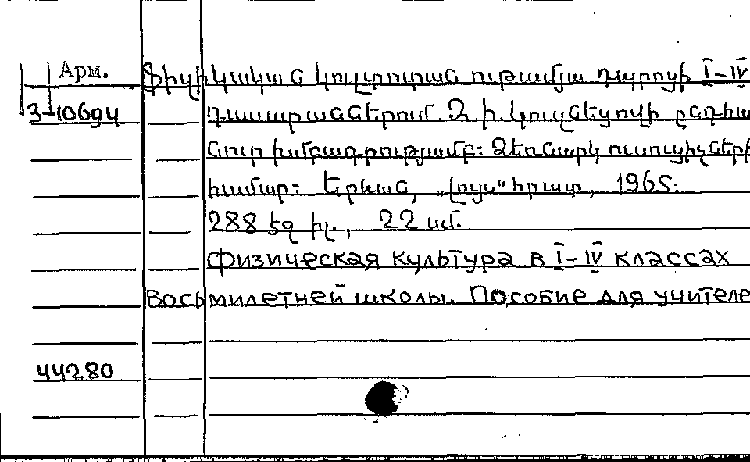 Арм.
Ֆիզիկական կուլտուրան ութամյա դպրոցի I-IV
3-10694
դասարաններում. Զ. ի. կուզնեցովի ընդհա
նուր խմբագրությամբ: Ձեռնարկ ուսուցիչների
համար: Երևան, „Լույս" հրատ, 1965.
288 էջ իլ., 22 սմ.
Физическая культура в I-IV классах
восьмилетней школы. Пособие для учителе
44280